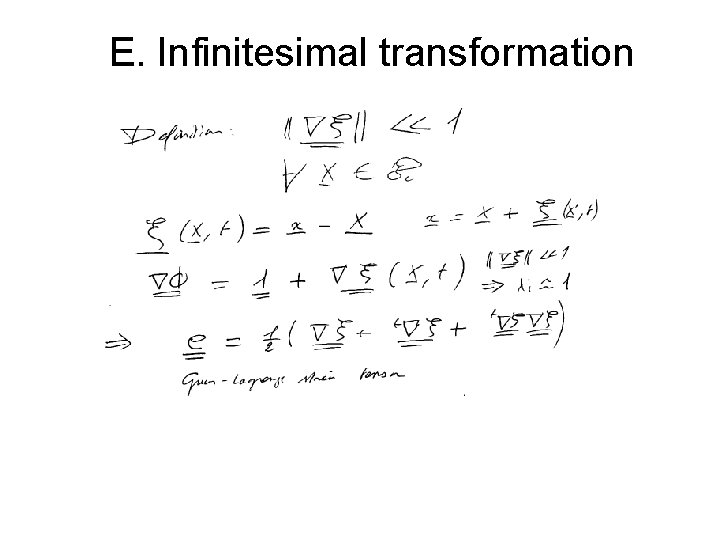 E. Infinitesimal transformation
Definition: ‖∇ξ‖ << 1
∀ X ∈
ξ(X,t) = x − X    x = X + ξ(X,t)
∇Φ = 1 + ∇ξ(X,t)    ‖∇ξ‖ << 1
⇒ λi ≃ 1
⇒ e = 1/2 (∇ξ + ᵗ∇ξ + ᵗ∇ξ∇ξ)
Green-Lagrange strain tensor